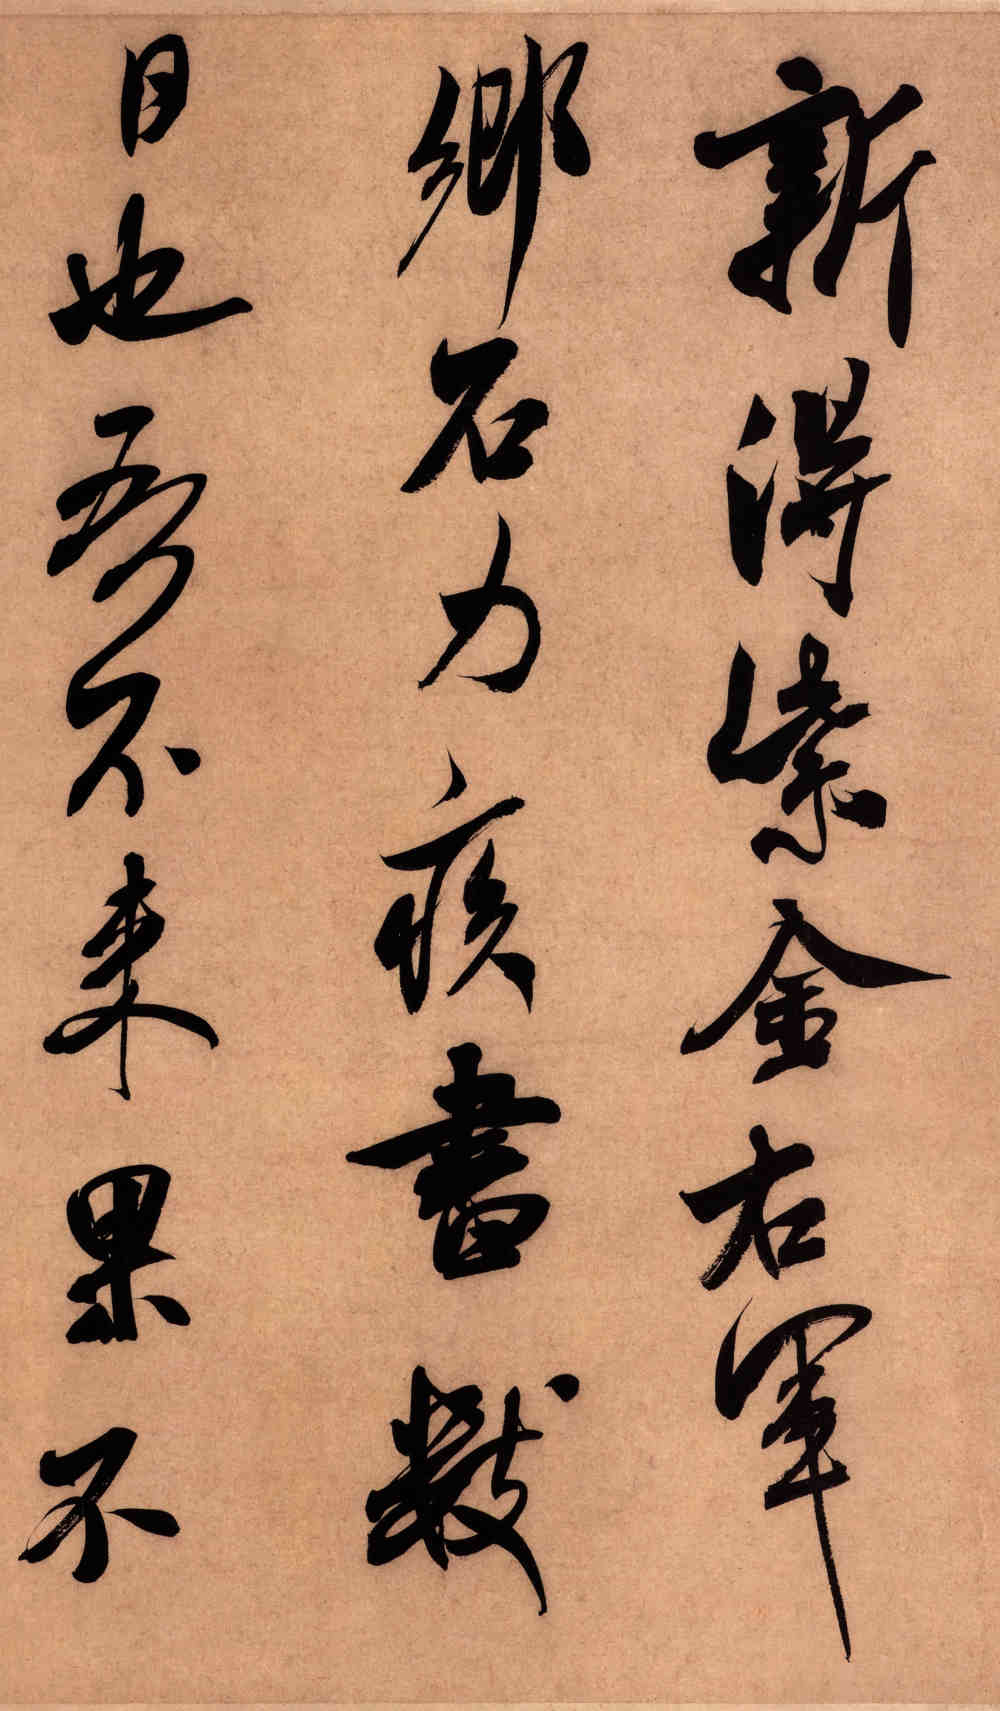 新得紫金右軍
鄉石力疾書數
日也吾不來果不